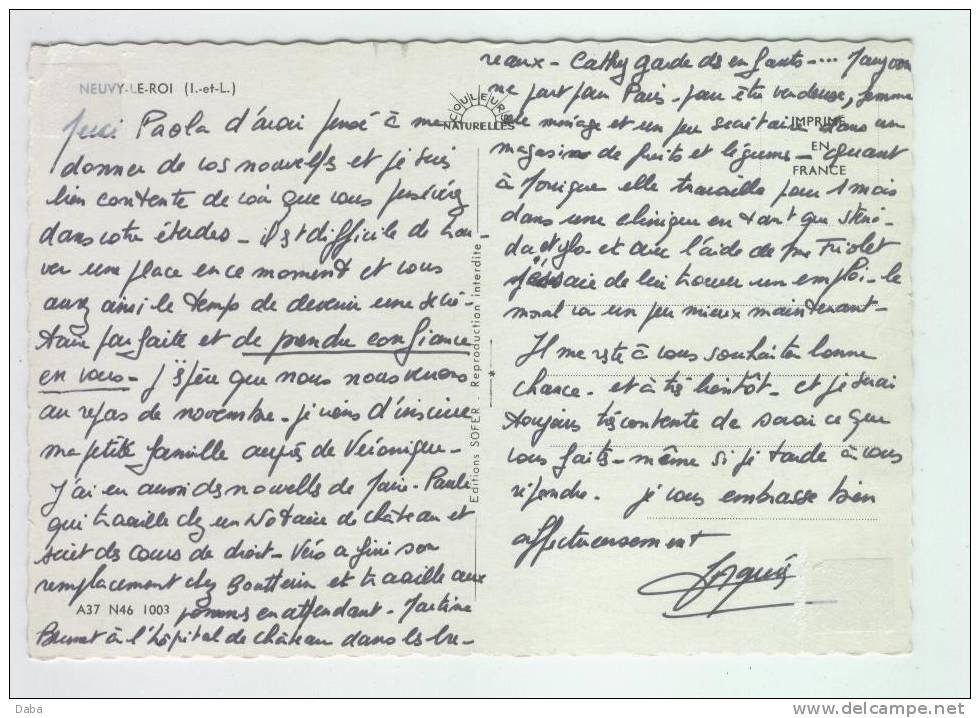 NEUVY-LE-ROI (I.-et-L.)
Merci Paola d'avoir pensé à me
donner de vos nouvelles et je suis
bien contente de voir que vous
dans votre études - il est difficile de trou
ver une place en ce moment et vous
aurez ainsi le temps de devenir une secré-
taire parfaite et de prendre confiance
en vous - J'espère que nous nous verrons
au repas de novembre - je viens d'inscrire
ma petite famille auprès de Véronique -
J'ai eu aussi ds nouvelles de Marie-Paule
qui travaille chez un Notaire de château et
suit des cours de droit - Véro a fini son
remplacement chez et travaille aux
pommes en attendant - Martine
à l'hôpital de château dans les bu-
A37 N46 1003
Editions SOFER - Reproduction interdite
COULEURS
NATURELLES
IMPRIMÉ
EN
FRANCE
reaux - Cathy garde ds enfants .... Maryvon
ne part pour Paris - pour être vendeuse, femme
de ménage et un peu secrétaire dans un
magasin de fruits et légumes - Quant
à Monique elle travaille pour 1 mois
dans une clinique en tant que sténo-
dactylo - et avec l'aide de Mme Friolet
j'essaie de lui trouver un emploi - le
moral va un peu mieux maintenant -
Il me reste à vous souhaiter bonne
chance - et à très bientôt - et je serai
toujours très contente de savoir ce que
vous faites - même si je tarde à vous
répondre - je vous embrasse bien
affectueusement
Daba
delcampe.net